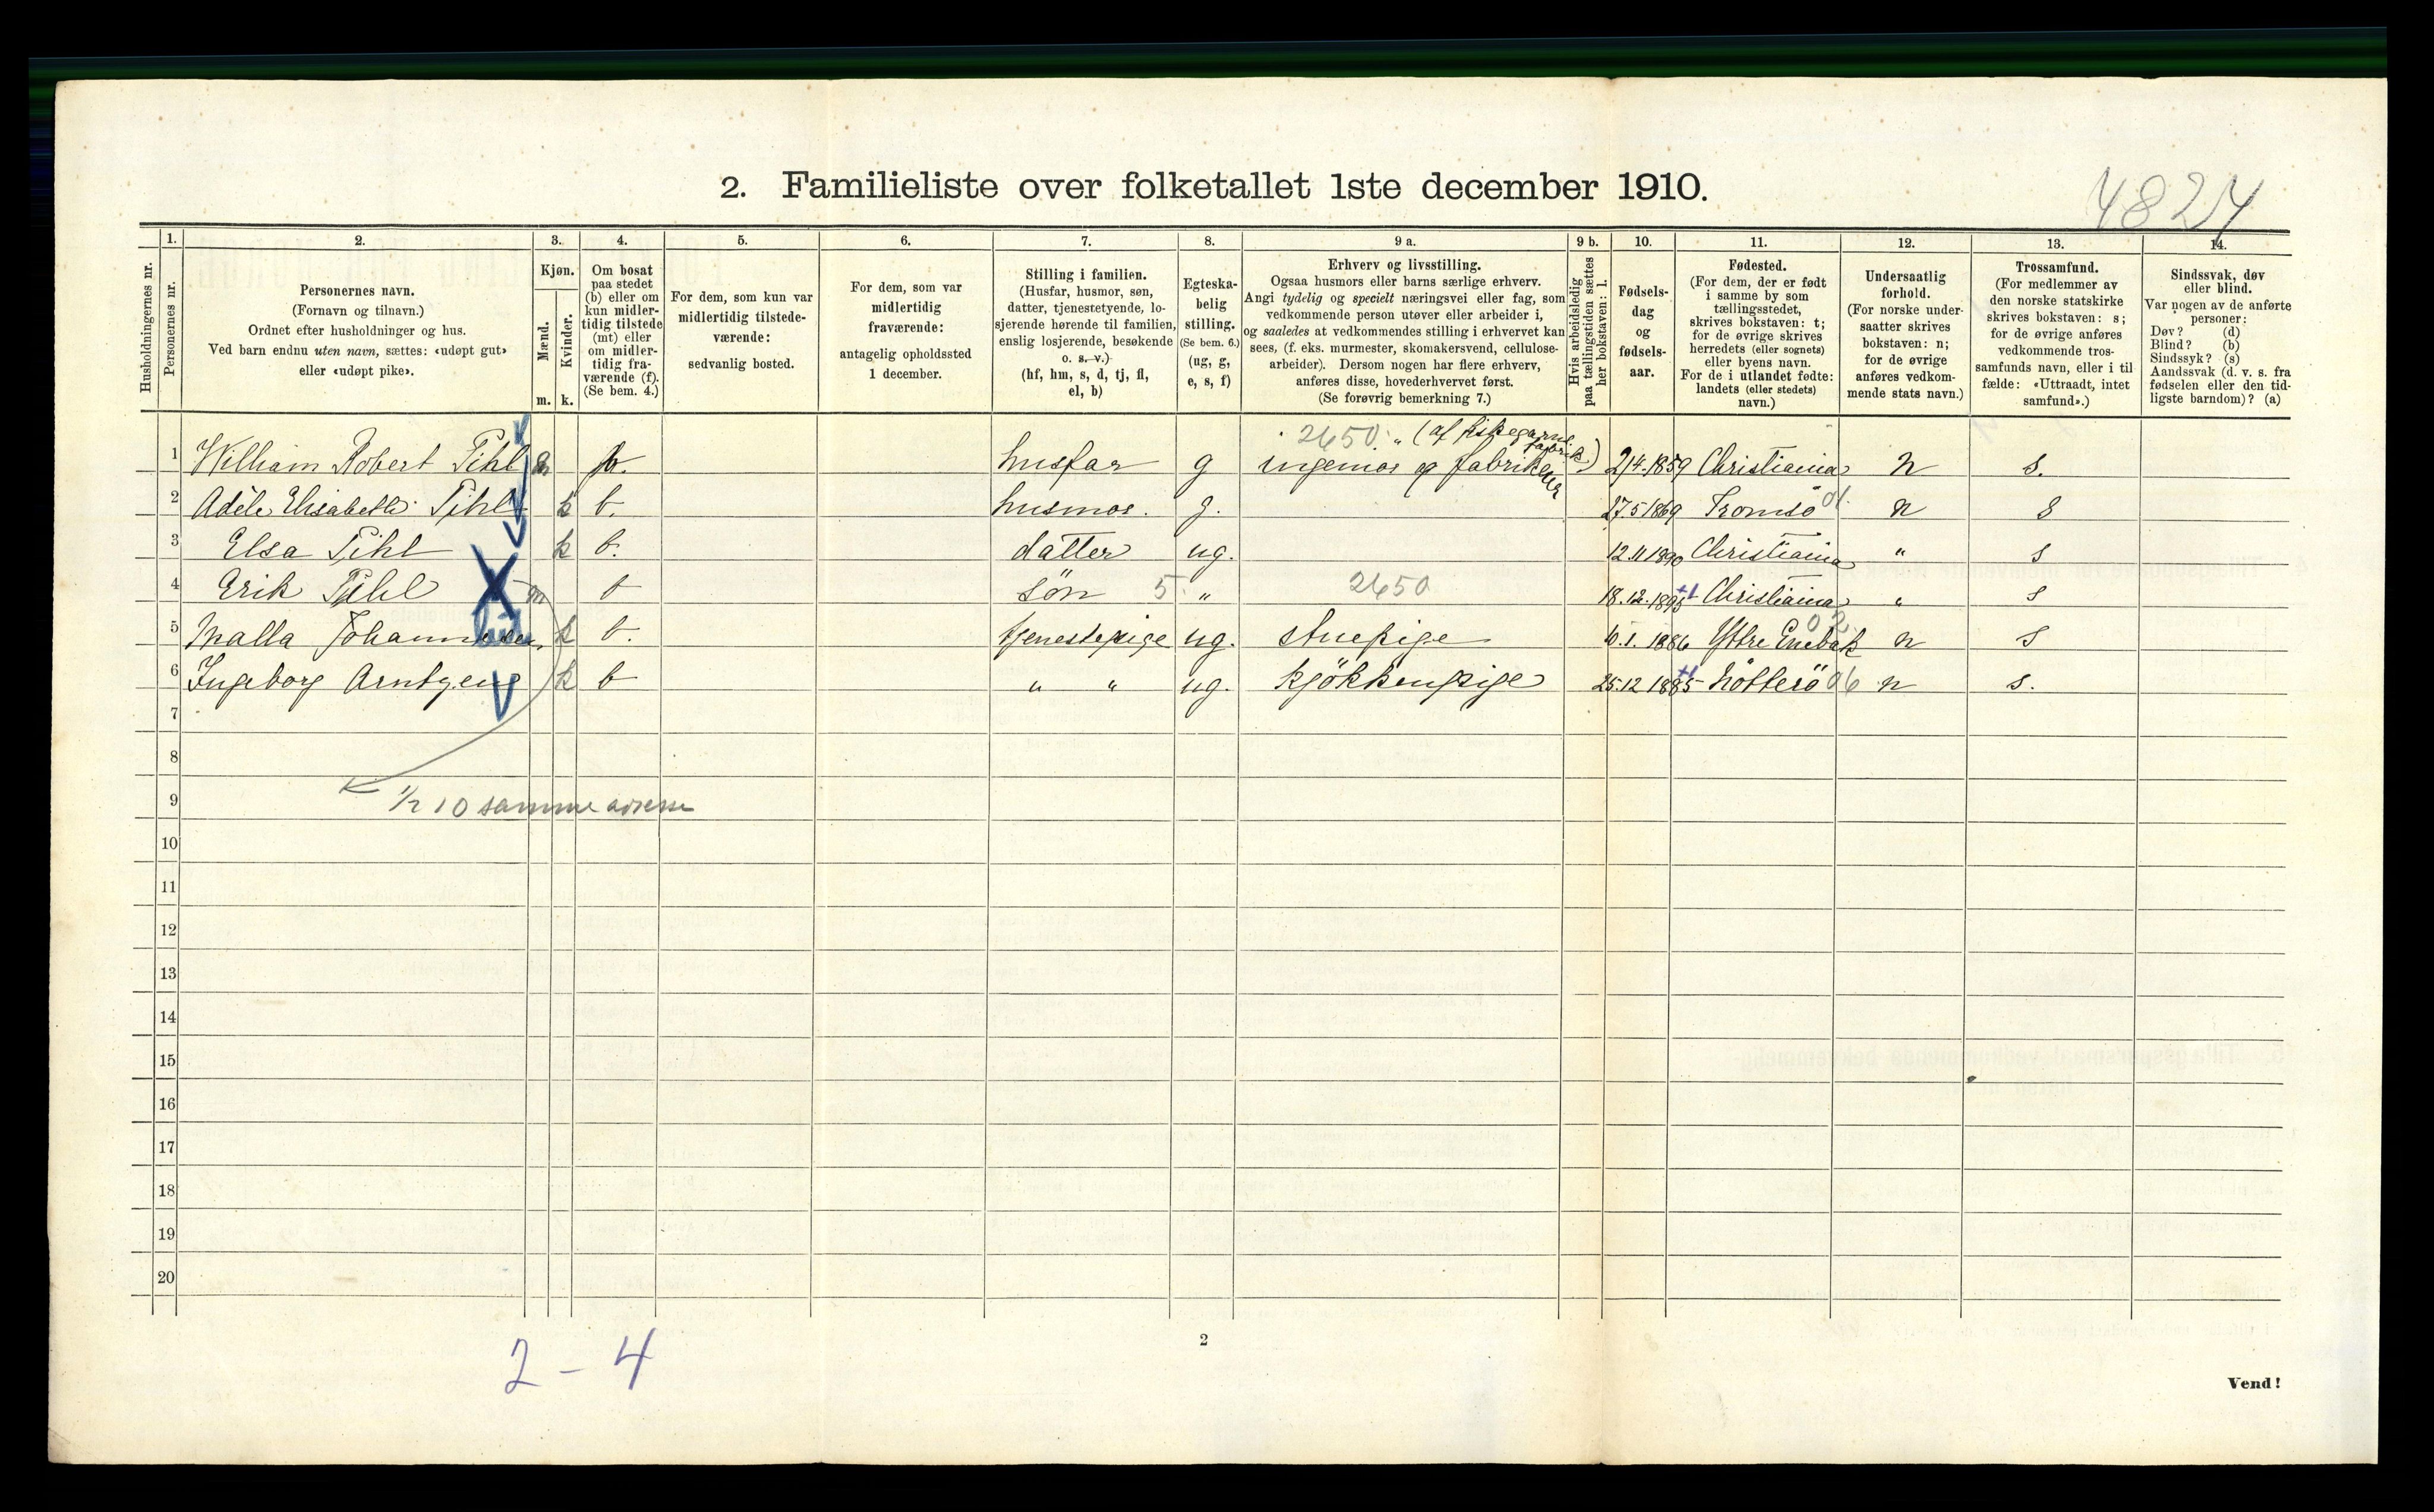 2. Familieliste over folketallet 1ste december 1910.
4824
Husholdningernes nr.
1. Personernes nr.
2. Personernes navn.
(Fornavn og tilnavn.)
Ordnet efter husholdninger og hus.
Ved barn endnu uten navn, sættes: «udøpt gut»
eller «udøpt pike».
3. Kjøn.
Mænd. m.
Kvinder. k.
4. Om bosat
paa stedet
(b) eller om
kun midler-
tidig tilstede
(mt) eller
om midler-
tidig fra-
værende (f).
(Se bem. 4.)
5. For dem, som kun var
midlertidig tilstede-
værende:
sedvanlig bosted.
6. For dem, som var
midlertidig
fraværende:
antagelig opholdssted
1 december.
7. Stilling i familien.
(Husfar, husmor, søn,
datter, tjenestetyende, lo-
sjerende hørende til familien,
enslig losjerende, besøkende
o. s. v.)
(hf, hm, s, d, tj, fl,
el, b)
8. Egteska-
belig
stilling.
(Se bem. 6.)
(ug, g,
e, s, f)
9 a. Erhverv og livsstilling.
Ogsaa husmors eller barns særlige erhverv.
Angi tydelig og specielt næringsvei eller fag, som
vedkommende person utøver eller arbeider i,
og saaledes at vedkommendes stilling i erhvervet kan
sees, (f. eks. murmester, skomakersvend, cellulose-
arbeider). Dersom nogen har flere erhverv,
anføres disse, hovederhvervet først.
(Se forøvrig bemerkning 7.)
9 b. Hvis arbeidsledig
paa tællingstiden sættes
her bokstaven: l.
10. Fødsels-
dag
og
fødsels-
aar.
11. Fødested.
(For dem, der er født
i samme by som
tællingsstedet,
skrives bokstaven: t;
for de øvrige skrives
herredets (eller sognets)
eller byens navn.
For de i utlandet fødte:
landets (eller stedets)
navn.)
12. Undersaatlig
forhold.
(For norske under-
saatter skrives
bokstaven: n;
for de øvrige
anføres vedkom-
mende stats navn.)
13. Trossamfund.
(For medlemmer av
den norske statskirke
skrives bokstaven: s;
for de øvrige anføres
vedkommende tros-
samfunds navn, eller i til
fælde: «Uttraadt, intet
samfund».)
14. Sindssvak, døv
eller blind.
Var nogen av de anførte
personer:
Døv? (d)
Blind? (b)
Sindssyk? (s)
Aandssvak (d. v. s. fra
fødselen eller den tid-
ligste barndom)? (a)
2650 " (af fiskegarns
fabrik)
1 William Robert Pihl m b. husfar g ingeniør og fabrikeier 21/4-1859 Christiania n s.
2 Adèle Elisabeth Pihl k b. husmor. g. 27.5 1869 Tromsö 01. n s
3 Elsa Pihl k b. datter ug. 12.11 1890 Christiania " s
4 Erik Pihl m b søn 5 " 2650 18.12.1895 +1 Christiania " s
5 Malla Johannesen k b. tjenestepige ug. stuepige 10.1.1886 Yttre Enebak 02 n s
6 Ingeborg Arntzen k b " " ug. kjøkkenpige 25.12 1885 +1 Nötterö 06 n s.
7
8
9 1/12 10 samme adresse
10
11
12
13
14
15
16
17
18
19
20
2 - 4
2
Vend!